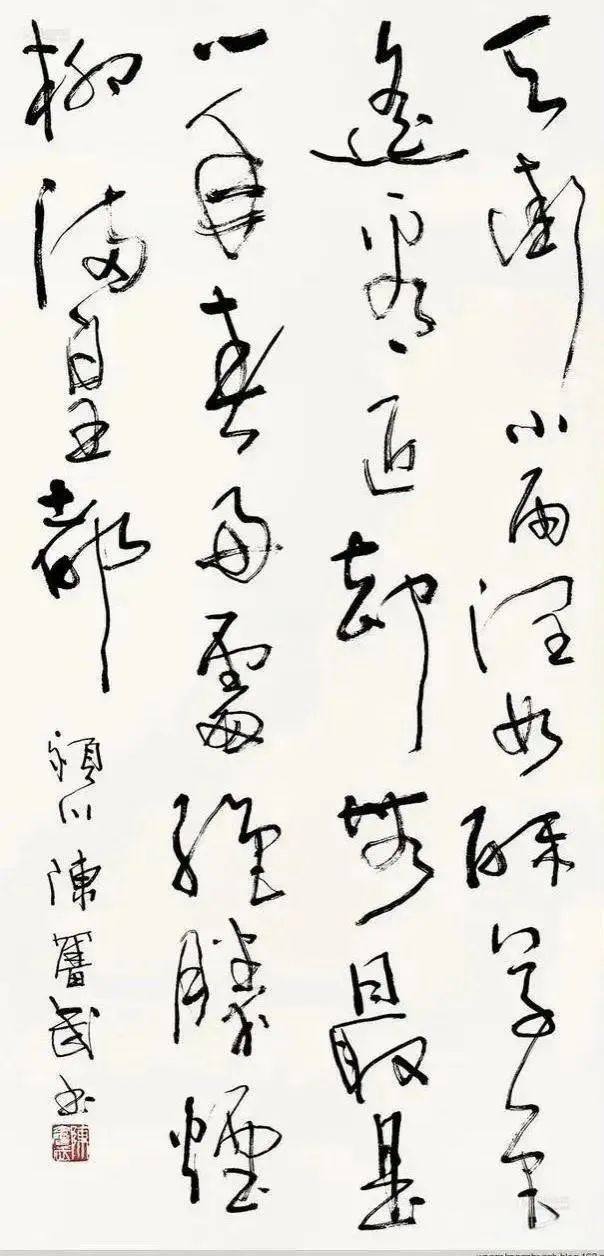 天街小雨潤如酥草色
遙看近卻無最是
一年春好處絕勝煙
柳滿皇都
潁川陳奮武书